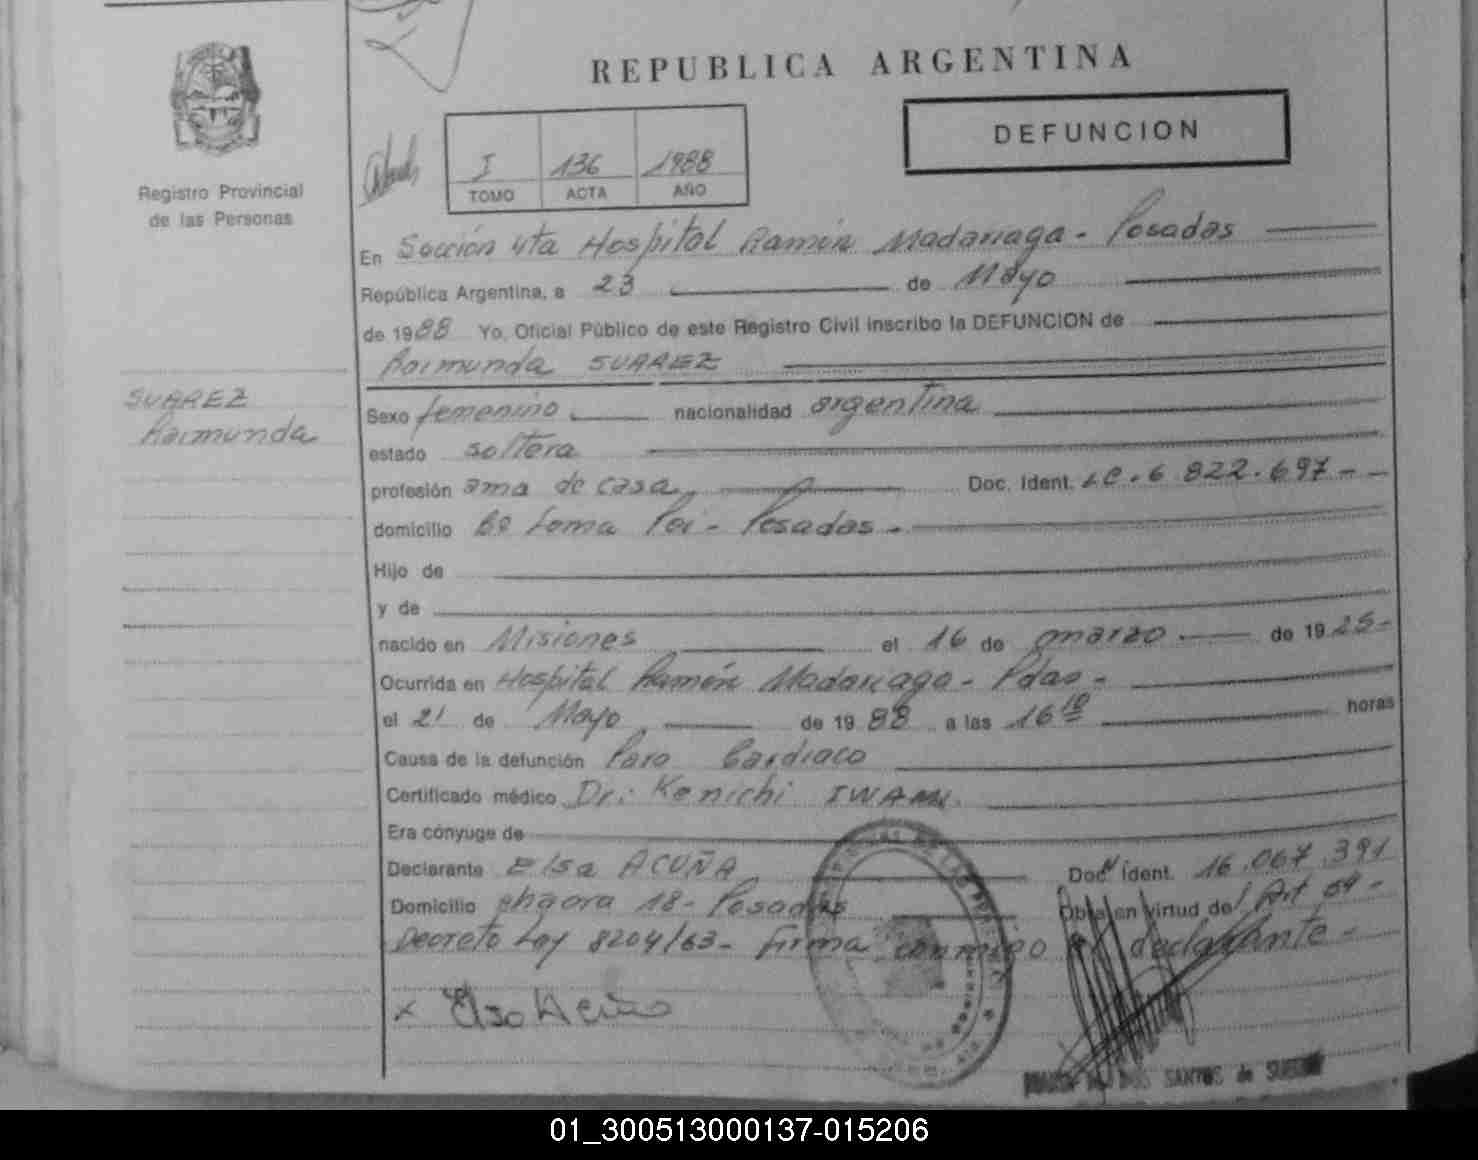 REPUBLICA ARGENTINA
DEFUNCION
I 136 1988
TOMO ACTA AÑO
Registro Provincial
de las Personas
En Sección 4ta Hospital Ramón Madariaga - Posadas
República Argentina, a 23 de Mayo
de 1988 Yo, Oficial Público de este Registro Civil inscribo la DEFUNCION de
Raimunda SUAREZ
SUAREZ
Raimunda
Sexo femenino nacionalidad argentina
estado soltera
profesión ama de casa Doc. Ident. LC. 6.822.697 - -
domicilio Bº Loma Poi - Posadas -
Hijo de
y de
nacido en Misiones el 16 de marzo de 1925-
Ocurrida en Hospital Ramón Madariaga - Pdas -
el 21 de Mayo de 1988 a las 16 10 horas
Causa de la defunción Paro Cardiaco
Certificado médico Dr: Kenichi IWAMI.
Era cónyuge de
Declarante Elsa ACUÑA Doc. Ident. 16.067.391
Domicilio chacra 18 - Posadas Obra en virtud del Art 64 -
Decreto Ley 8204/63 - firma conmigo el declarante -
x Elsa Acuña
DOS SANTOS de
01_300513000137-015206